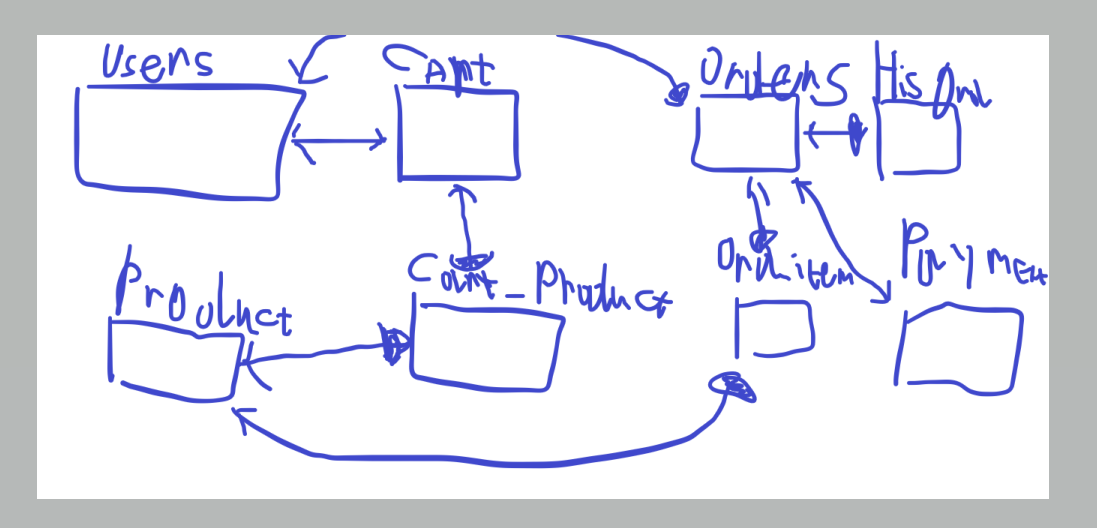 Users
Cart
Orders
His Ord
Product
Cart_Product
Ord item
Payment